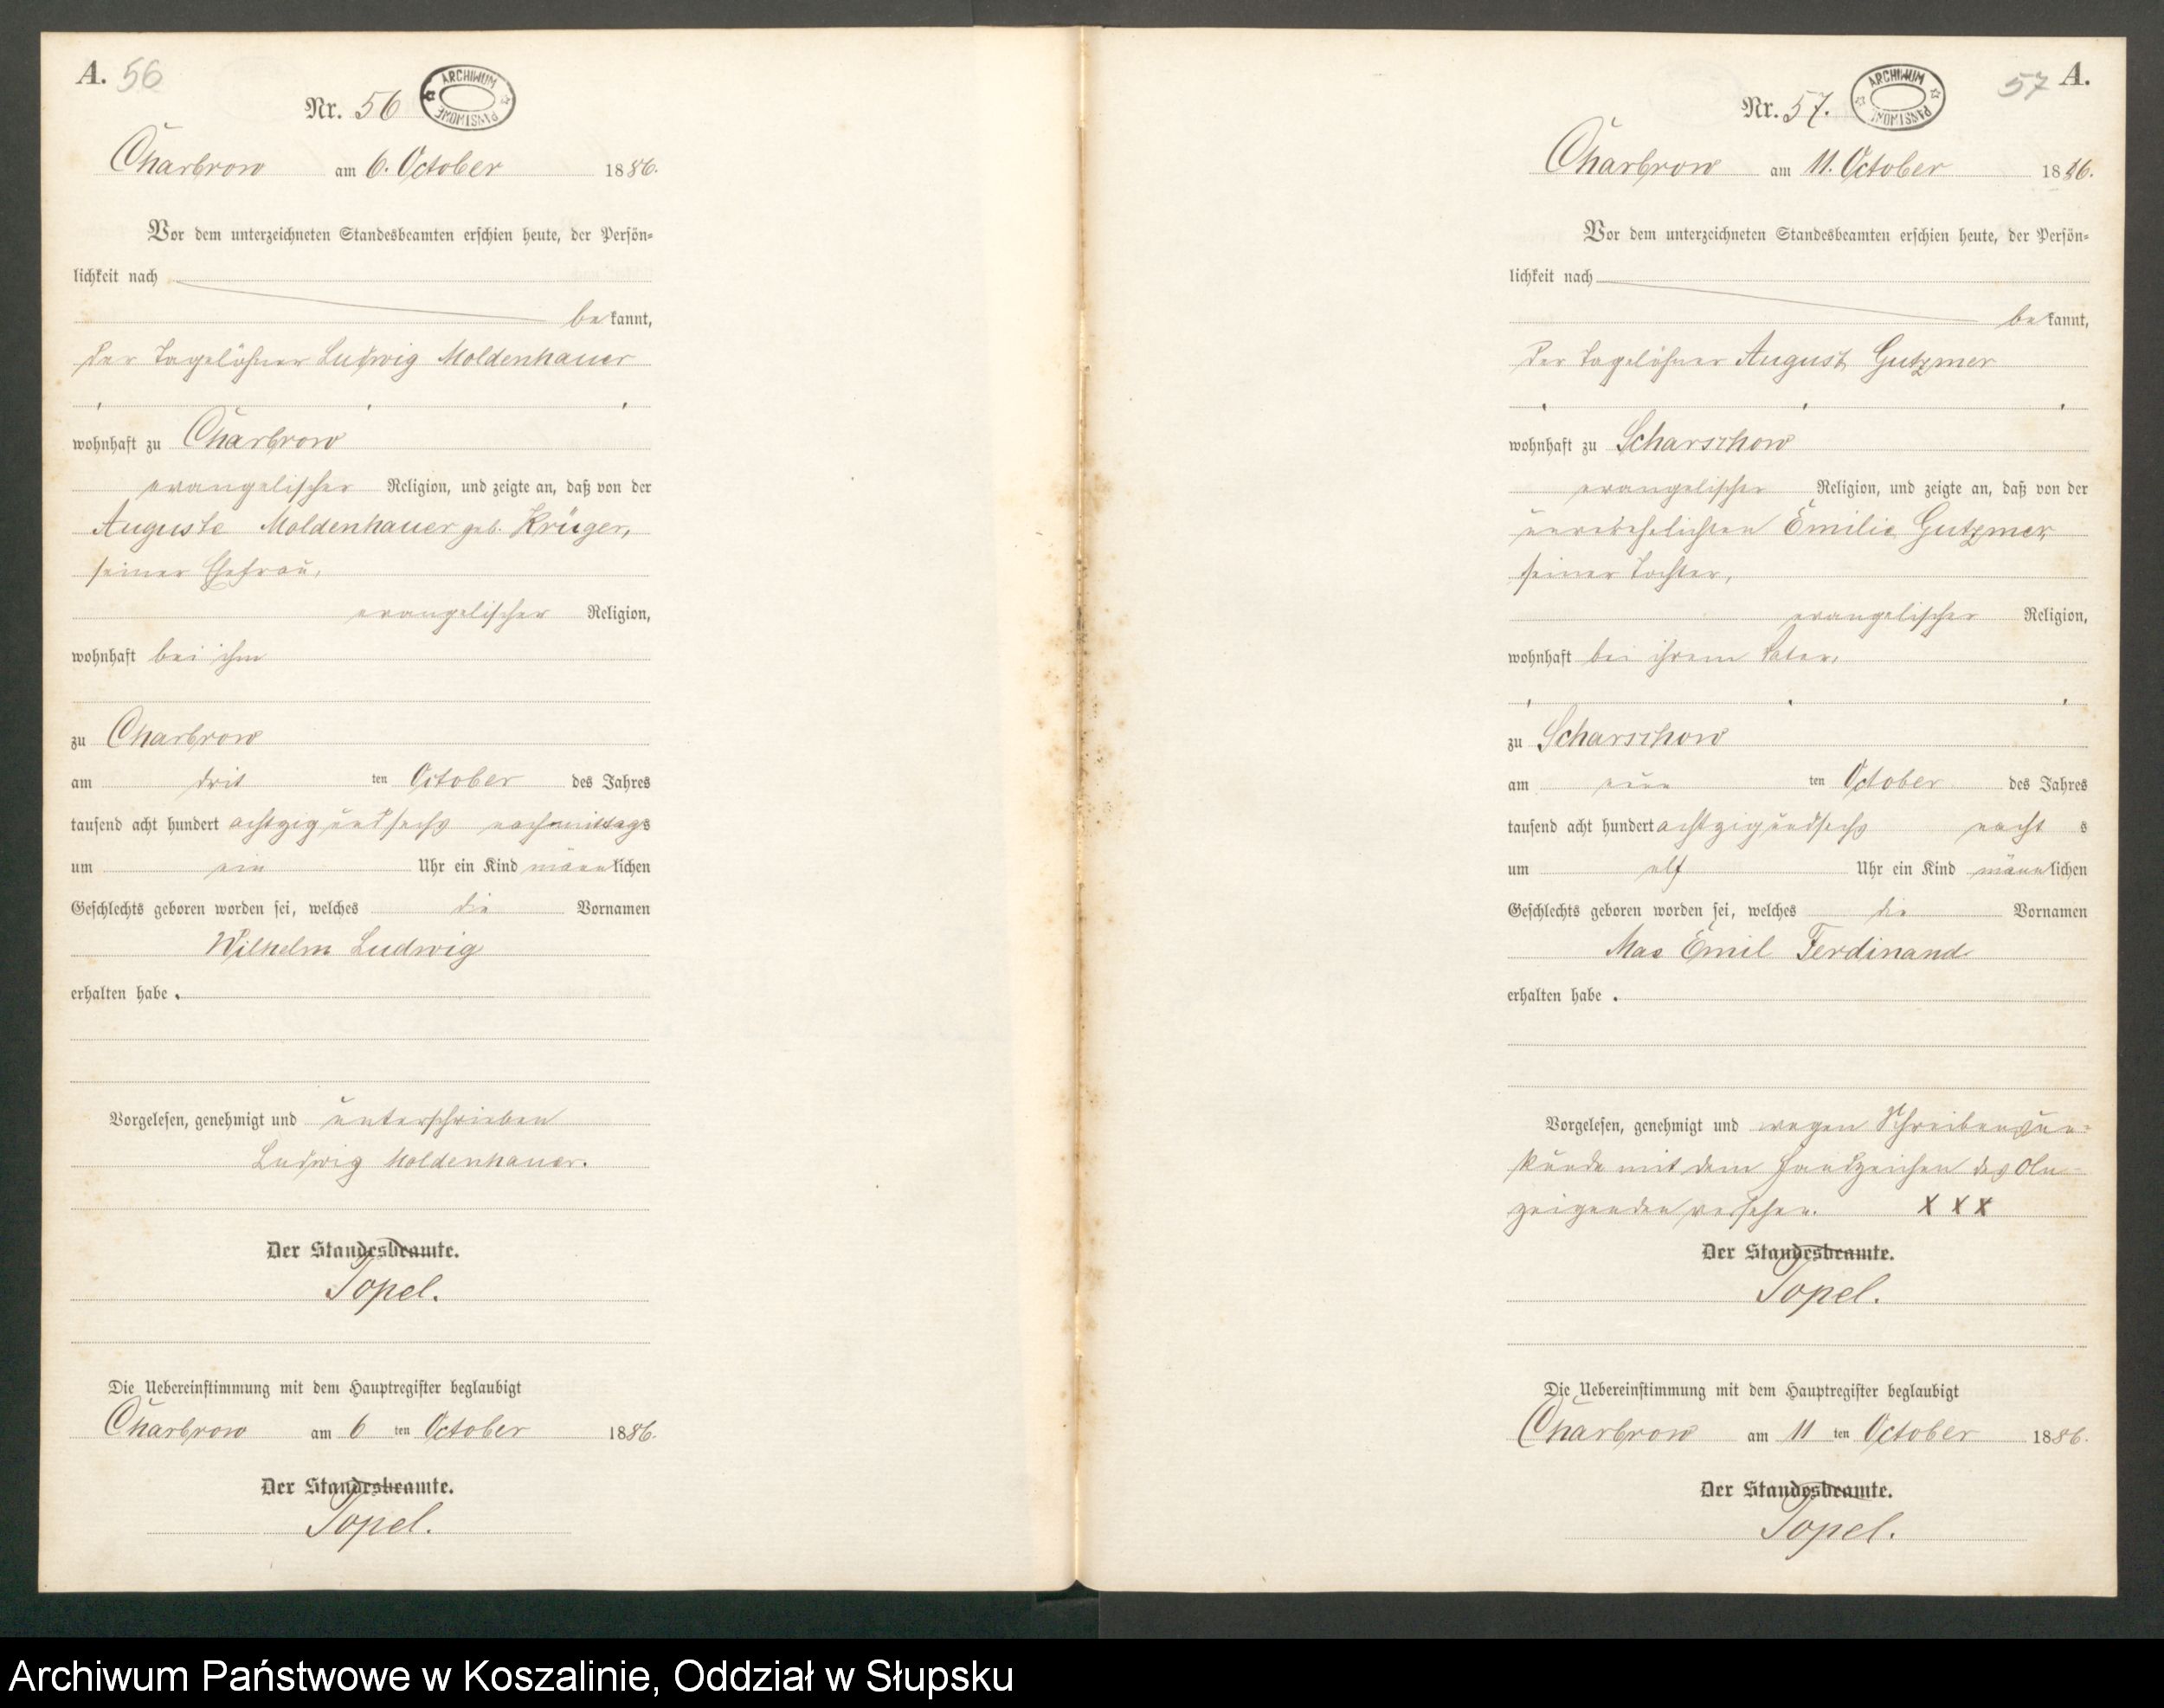 A. 56
Nr. 56
ARCHIWUM
PAŃSTWOWE
Charbrow am 6. October 1886.
Vor dem unterzeichneten Standesbeamten erschien heute, der Persön=
lichkeit nach
bekannt,
der Tagelöhner Ludwig Moldenhauer
wohnhaft zu Charbrow
evangelischer Religion, und zeigte an, daß von der
Auguste Moldenhauer geb. Krüger,
seiner Ehefrau,
evangelischer Religion,
wohnhaft bei ihm
zu Charbrow
am drit ten October des Jahres
tausend acht hundert achtzig und sechs nachmittags
um ein Uhr ein Kind männlichen
Geschlechts geboren worden sei, welches die Vornamen
Wilhelm Ludwig
erhalten habe.
Vorgelesen, genehmigt und unterschrieben
Ludwig Moldenhauer.
Der Standesbeamte.
Topel.
Die Uebereinstimmung mit dem Hauptregister beglaubigt
Charbrow am 6 ten October 1886.
Der Standesbeamte.
Topel.
57 A.
Nr. 57.
ARCHIWUM
PAŃSTWOWE
Charbrow am 11. October 1886.
Vor dem unterzeichneten Standesbeamten erschien heute, der Persön=
lichkeit nach
bekannt,
der Tagelöhner August Gutzmer
wohnhaft zu Scharschow
evangelischer Religion, und zeigte an, daß von der
unverehelichten Emilie Gutzmer,
seiner Tochter,
evangelischer Religion,
wohnhaft bei ihrem Vater,
zu Scharschow
am neun ten October des Jahres
tausend acht hundert achtzig und sechs nachts
um elf Uhr ein Kind männlichen
Geschlechts geboren worden sei, welches die Vornamen
Max Emil Ferdinand
erhalten habe.
Vorgelesen, genehmigt und wegen Schreibensun=
kunde mit dem Handzeichen des An=
zeigenden versehen. X X X
Der Standesbeamte.
Topel.
Die Uebereinstimmung mit dem Hauptregister beglaubigt
Charbrow am 11 ten October 1886.
Der Standesbeamte.
Topel.
Archiwum Państwowe w Koszalinie, Oddział w Słupsku